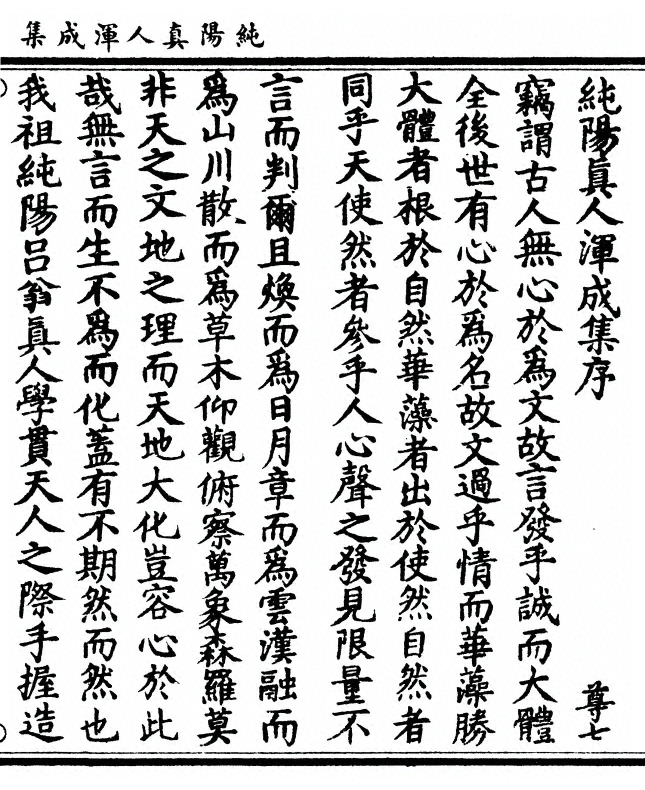 純陽真人渾成集
純陽眞人渾成集序
尊七
竊謂古人無心於爲文故言發乎誠而大體
全後世有心於爲名故文過乎情而華藻勝
大體者根於自然華藻者出於使然自然者
同乎天使然者參乎人心聲之發見限量不
言而判爾且煥而爲日月章而爲雲漢融而
爲山川散而爲草木仰觀俯察萬象森羅莫
非天之文地之理而天地大化豈容心於此
哉無言而生不爲而化蓋有不期然而然也
我祖純陽吕翁眞人學貫天人之際手握造